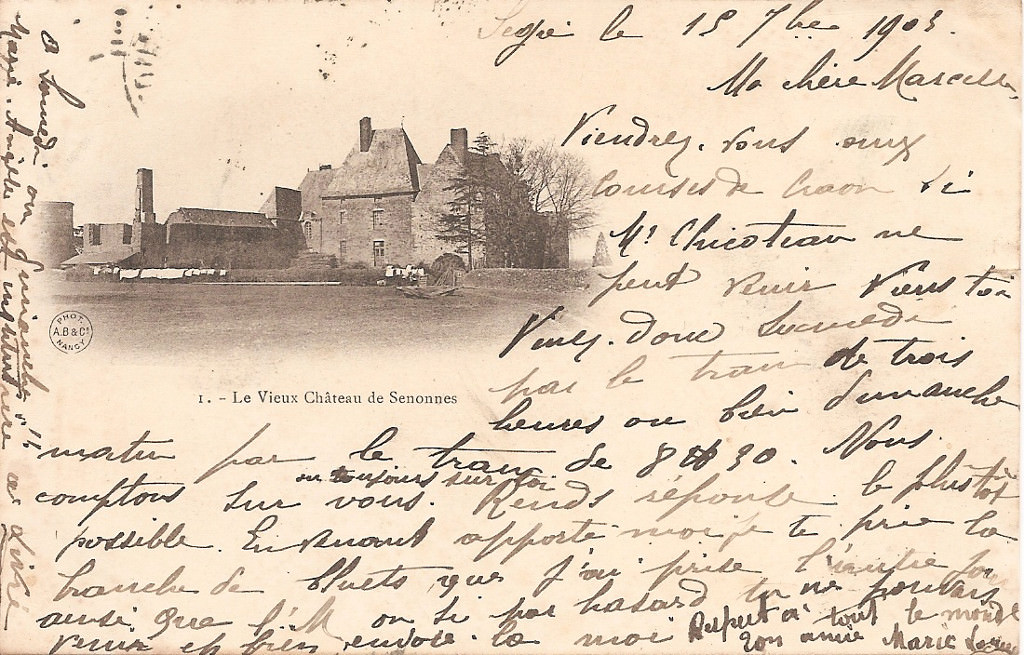 le 15 7bre 1903
Ma chère Marcelle,
Viendrez-vous aux
courses de Craon si
Mr Chicoteau ne
peut venir viens toi
Venez donc Samedi
par le train de trois
heures ou bien dimanche
matin par le train de 8 H 30. Nous
ou toujours sur toi
comptons sur vous. Rends réponse le plustôt
possible. En venant apporte moi je te prie la
branche de bluets que j'ai prise l'autre jour
ainsi que l'M ou si par hasard tu ne pouvais
venir eh bien envoie-la moi
Respect à tout le monde
Ton amie Marie
1. - Le Vieux Château de Senonnes
PHOT.
A.B & Cie
NANCY
à Samedi ou Dimanche !!
Marie-Angèle est institutrice à Livré